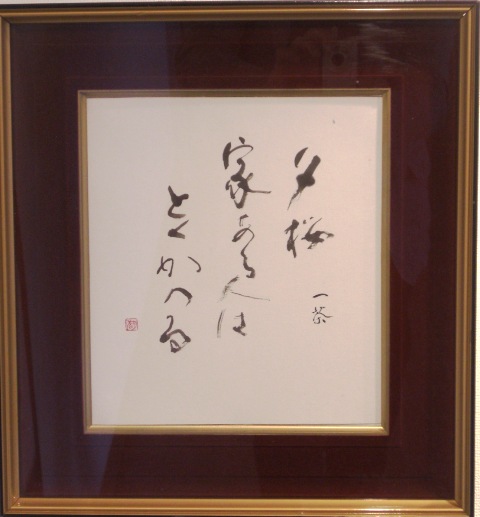 夕桜
一茶
家ある人は
とくかへる